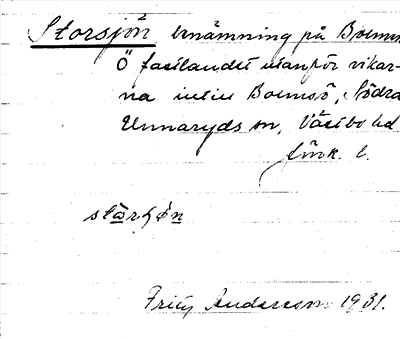 Storsjön benämning på Bolmen
Ö fastlandet utanför vikar-
na intill Bolmsö, Södra
Unnaryds sn, Västbo hd
Jönk. l.
Fritz Andersson 1931.